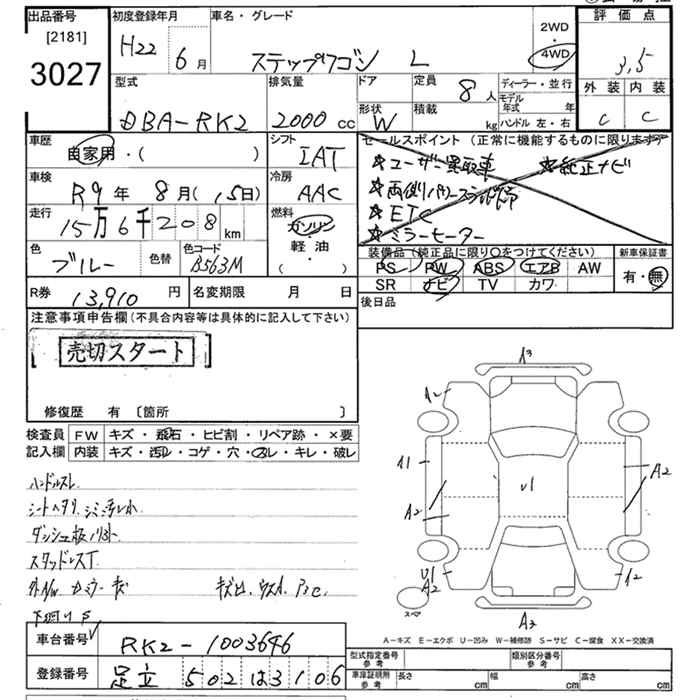 出品番号 初度登録年月 車名・グレード 2WD・4WD 評価点
[2181] H22年 6月 ステップワゴン L 3.5
3027 外装 内装
C C
型式 排気量 ドア 定員 8人 ディーラー・並行
DBA-RK2 2000cc 形状 W 積載 kg モデル年式 年
ハンドル 左・右
車歴 自家用・( ) シフト IAT
セールスポイント (正常に機能するものに限ります)
★ユーザー買取車 ★純正ナビ
★両側パワースライド
★ETC
★ミラーモーター
車検 R9年 8月(15日) 冷房 AAC
走行 15万6千208km 燃料 ガソリン・軽油・( )
色 ブルー 色替 色コード B563M
装備品(純正品に限り○をつけてください) 新車保証書
PS PW ABS エアB AW 有・無
SR ナビ TV カワ
R券 13,910円 名変期限 月 日 後日品
注意事項申告欄(不具合内容等は具体的に記入して下さい)
売切スタート
修復歴 有 〔箇所 〕
検査員 FW キズ・飛石・ヒビ割・リペア跡・×要
記入欄 内装 キズ・汚レ・コゲ・穴・スレ・キレ・破レ
ハンドルスレ
シートヘタリ シミ
ダッシュ板
スタッドレスT
外A/W ミラーキズ キズ凹
A3
A2
A1
A2
U1
A2
U1
A2
A2
A2
スペア
A-キズ E-エクボ U-凹み W-補修跡 S-サビ C-腐食 XX-交換済
車台番号 RK2-1003646
登録番号 足立 502 は 3106
型式指定番号 参考 類別区分番号 参考
車庫証明用 参考 長さ cm 幅 cm 高さ cm